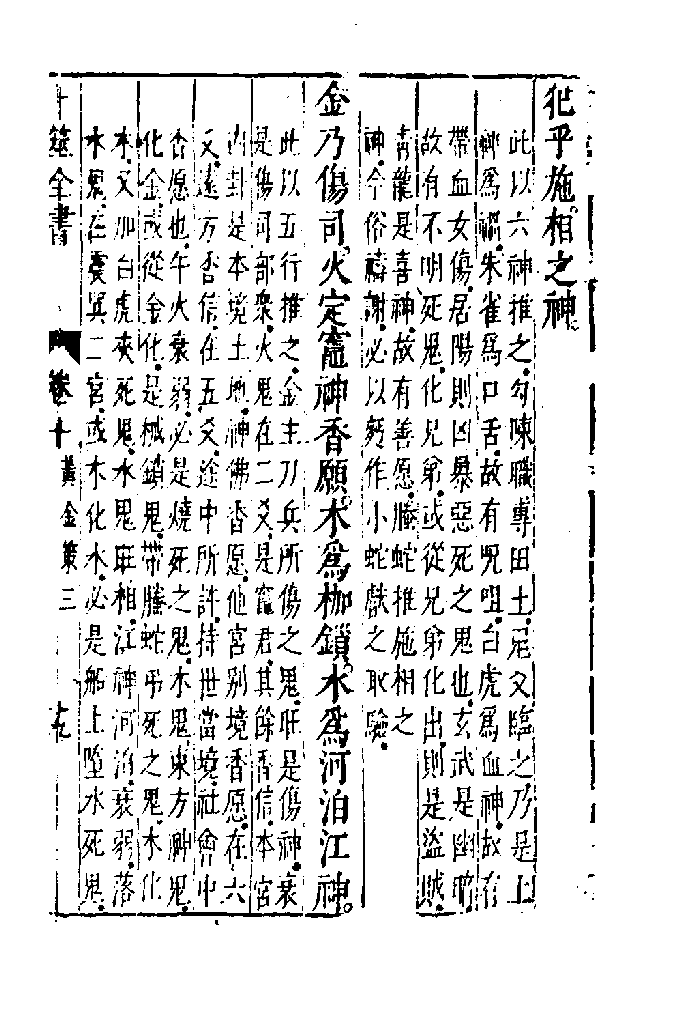 犯乎施相之神
此以六神推之勾陳職專田土鬼爻臨之乃是土
神爲禍朱雀爲口舌故有咒咀白虎爲血神故有
帶血女傷居陽則凶暴惡死之鬼也玄武是幽暗
故有不明死鬼化兄弟或從兄弟化出則是盜賊
青龍是喜神故有善愿螣蛇推施相之
神今俗禱謝必以麪作小蛇獻之取驗
金乃傷司火定竈神香願木爲枷鎖水爲河泊江神
此以五行推之金主刀兵所傷之鬼旺是傷神衰
是傷司部衆火鬼在二爻是竈君其餘香信本宮
内卦是本境土地神佛香愿他宮別境香愿在六
爻遠方香信在五爻途中所許持世當境社會中
香愿也午火衰弱必是燒死之鬼木鬼東方神鬼
化金或從金化是枷鎖鬼帶螣蛇弔死之鬼木化
木又加白虎夾死鬼水鬼旺相江神河泊衰弱落
水鬼在震巽二宮或木化水必是船上墮水死鬼
卜筮全書 卷十 黃金策三 十九